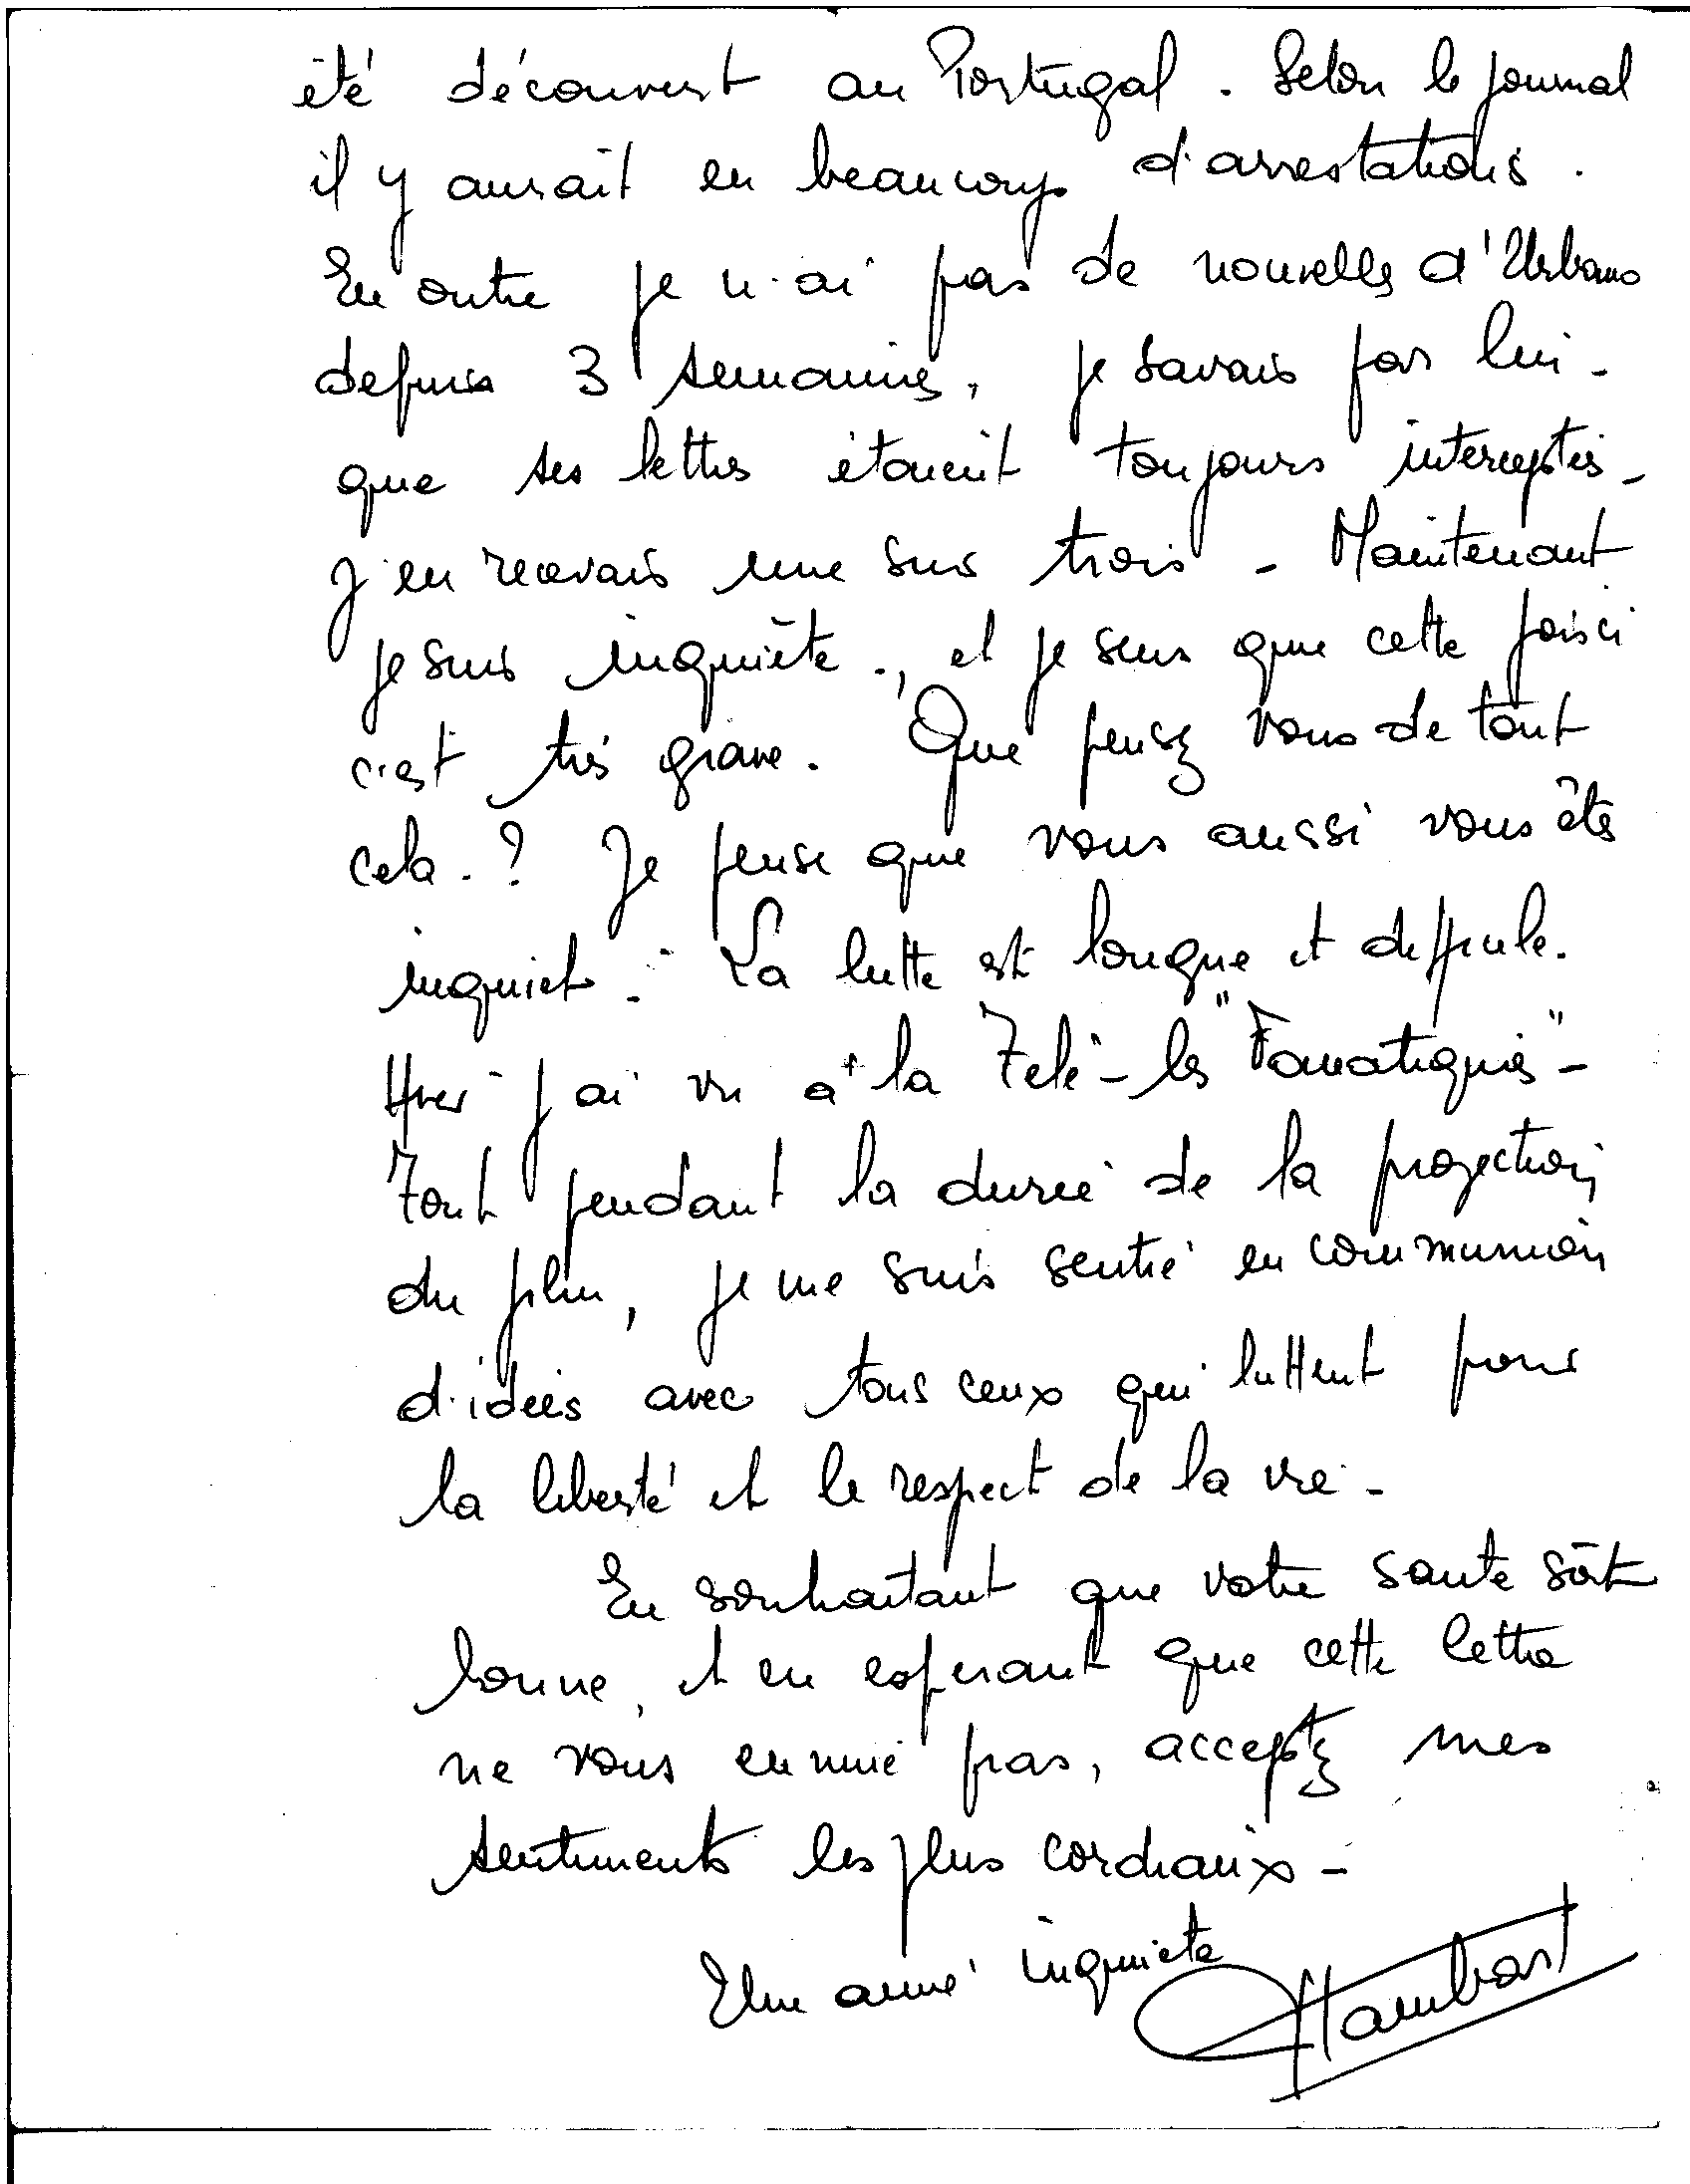 été découvert au Portugal. Selon le journal
il y aurait eu beaucoup d'arrestations.
En outre je n'ai pas de nouvelles d'Urbano
depuis 3 semaines, je savais par lui -
que ses lettres étaient toujours interceptés -
J'en recevais une sur trois - Maintenant
je suis inquiète., et je sens que cette fois ci
c'est très grave. Que pensez vous de tout
cela. ? Je pense que vous aussi vous êtes
inquiet. La lutte est longue et difficile.
Hier j'ai vu à la Télé - les "Fanatiques" -
Tout pendant la durée de la projection
du film, je me suis sentie en communion
d'idées avec tous ceux qui luttent pour
la liberté et le respect de la vie -
En souhaitant que votre santé soit
bonne, et en esperant que cette lettre
ne vous ennuie pas, acceptez mes
sentiments les plus cordiaux -
Une amie inquiete